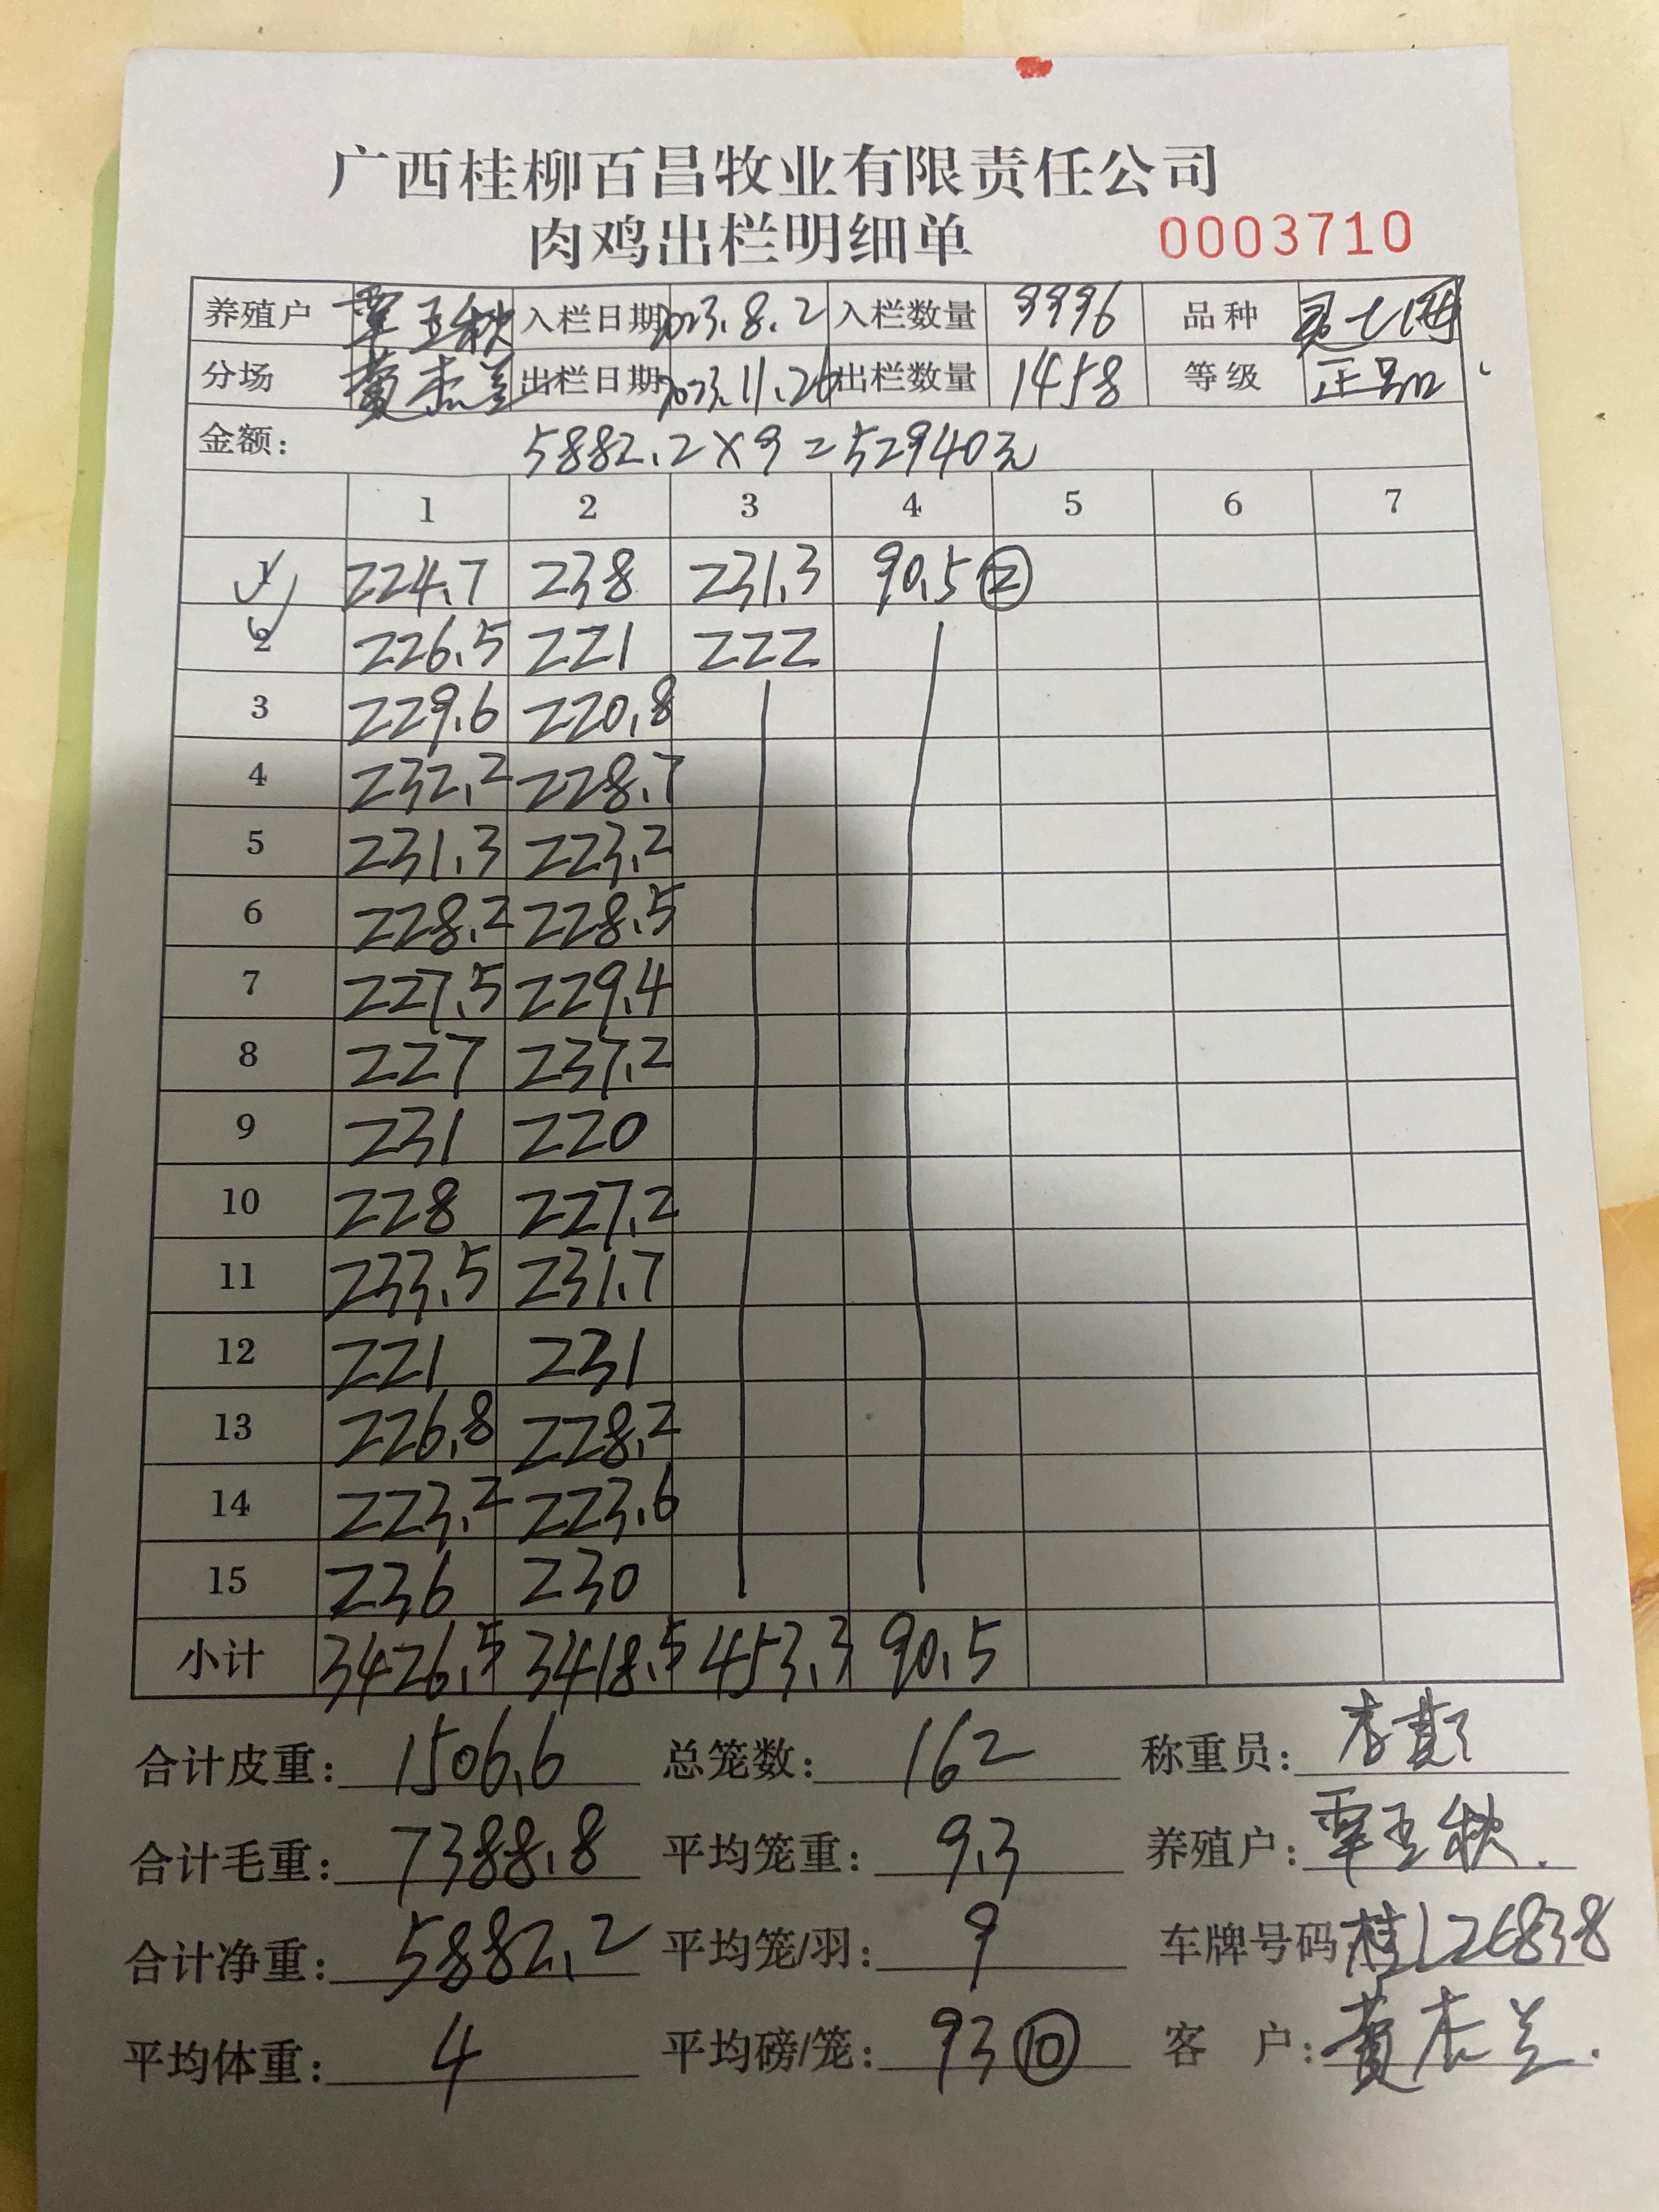 广西桂柳百昌牧业有限责任公司
肉鸡出栏明细单 0003710
养殖户 覃玉秋 入栏日期 2023.8.2 入栏数量 9996 品种
分场 黄杰兰 出栏日期 2023.11.26 出栏数量 1458 等级 正品
金额: 5882.2×9=52940元
1 2 3 4 5 6 7
1 224.7 238 231.3 90.5 ②
2 226.5 221 222
3 229.6 220.8
4 232.2 228.7
5 231.3 223.2
6 228.2 228.5
7 227.5 229.4
8 227 237.2
9 231 220
10 228 227.2
11 233.5 231.7
12 221 231
13 226.8 228.2
14 223.2 223.6
15 236 230
小计 3426.5 3418.5 453.3 90.5
合计皮重: 1506.6 总笼数: 162 称重员:
合计毛重: 7388.8 平均笼重: 9.3 养殖户: 覃玉秋.
合计净重: 5882.2 平均笼/羽: 9 车牌号码 桂L26838
平均体重: 4 平均磅/笼: 93 ⑩ 客 户: 黄杰兰.